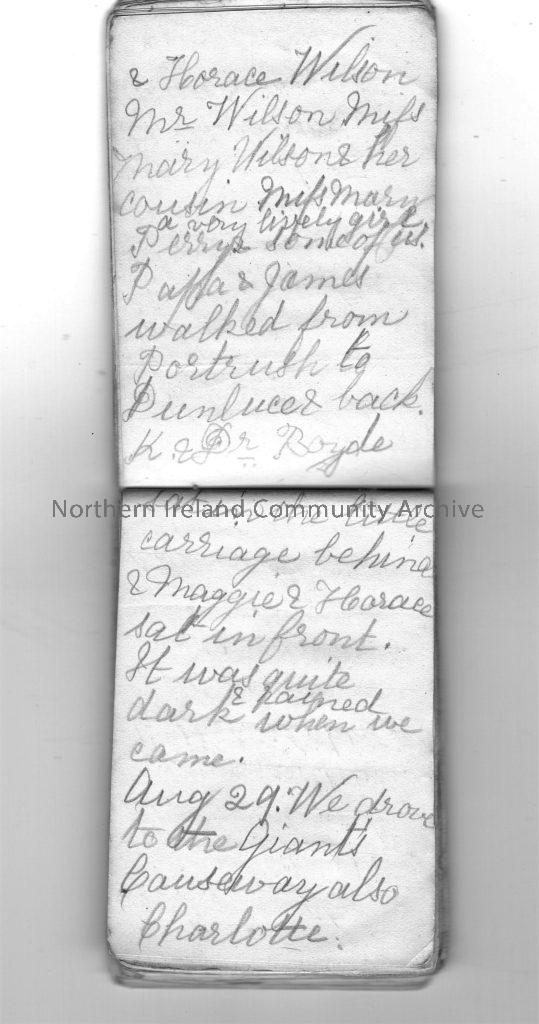 & Horace Wilson
Mr Wilson Miss
Mary Wilson & her
cousin Miss Mary
a very lively girl
Perry & some of us.
Pappa & James
walked from
Portrush to
Dunluce & back.
K. & Dr. Boyde
sat in the little
Northern Ireland Community Archive
carriage behind
& Maggie & Horace
sat in front.
It was quite
& rained
dark when we
came.
Aug 29. We drove
to the Giants
Causeway also
Charlotte.